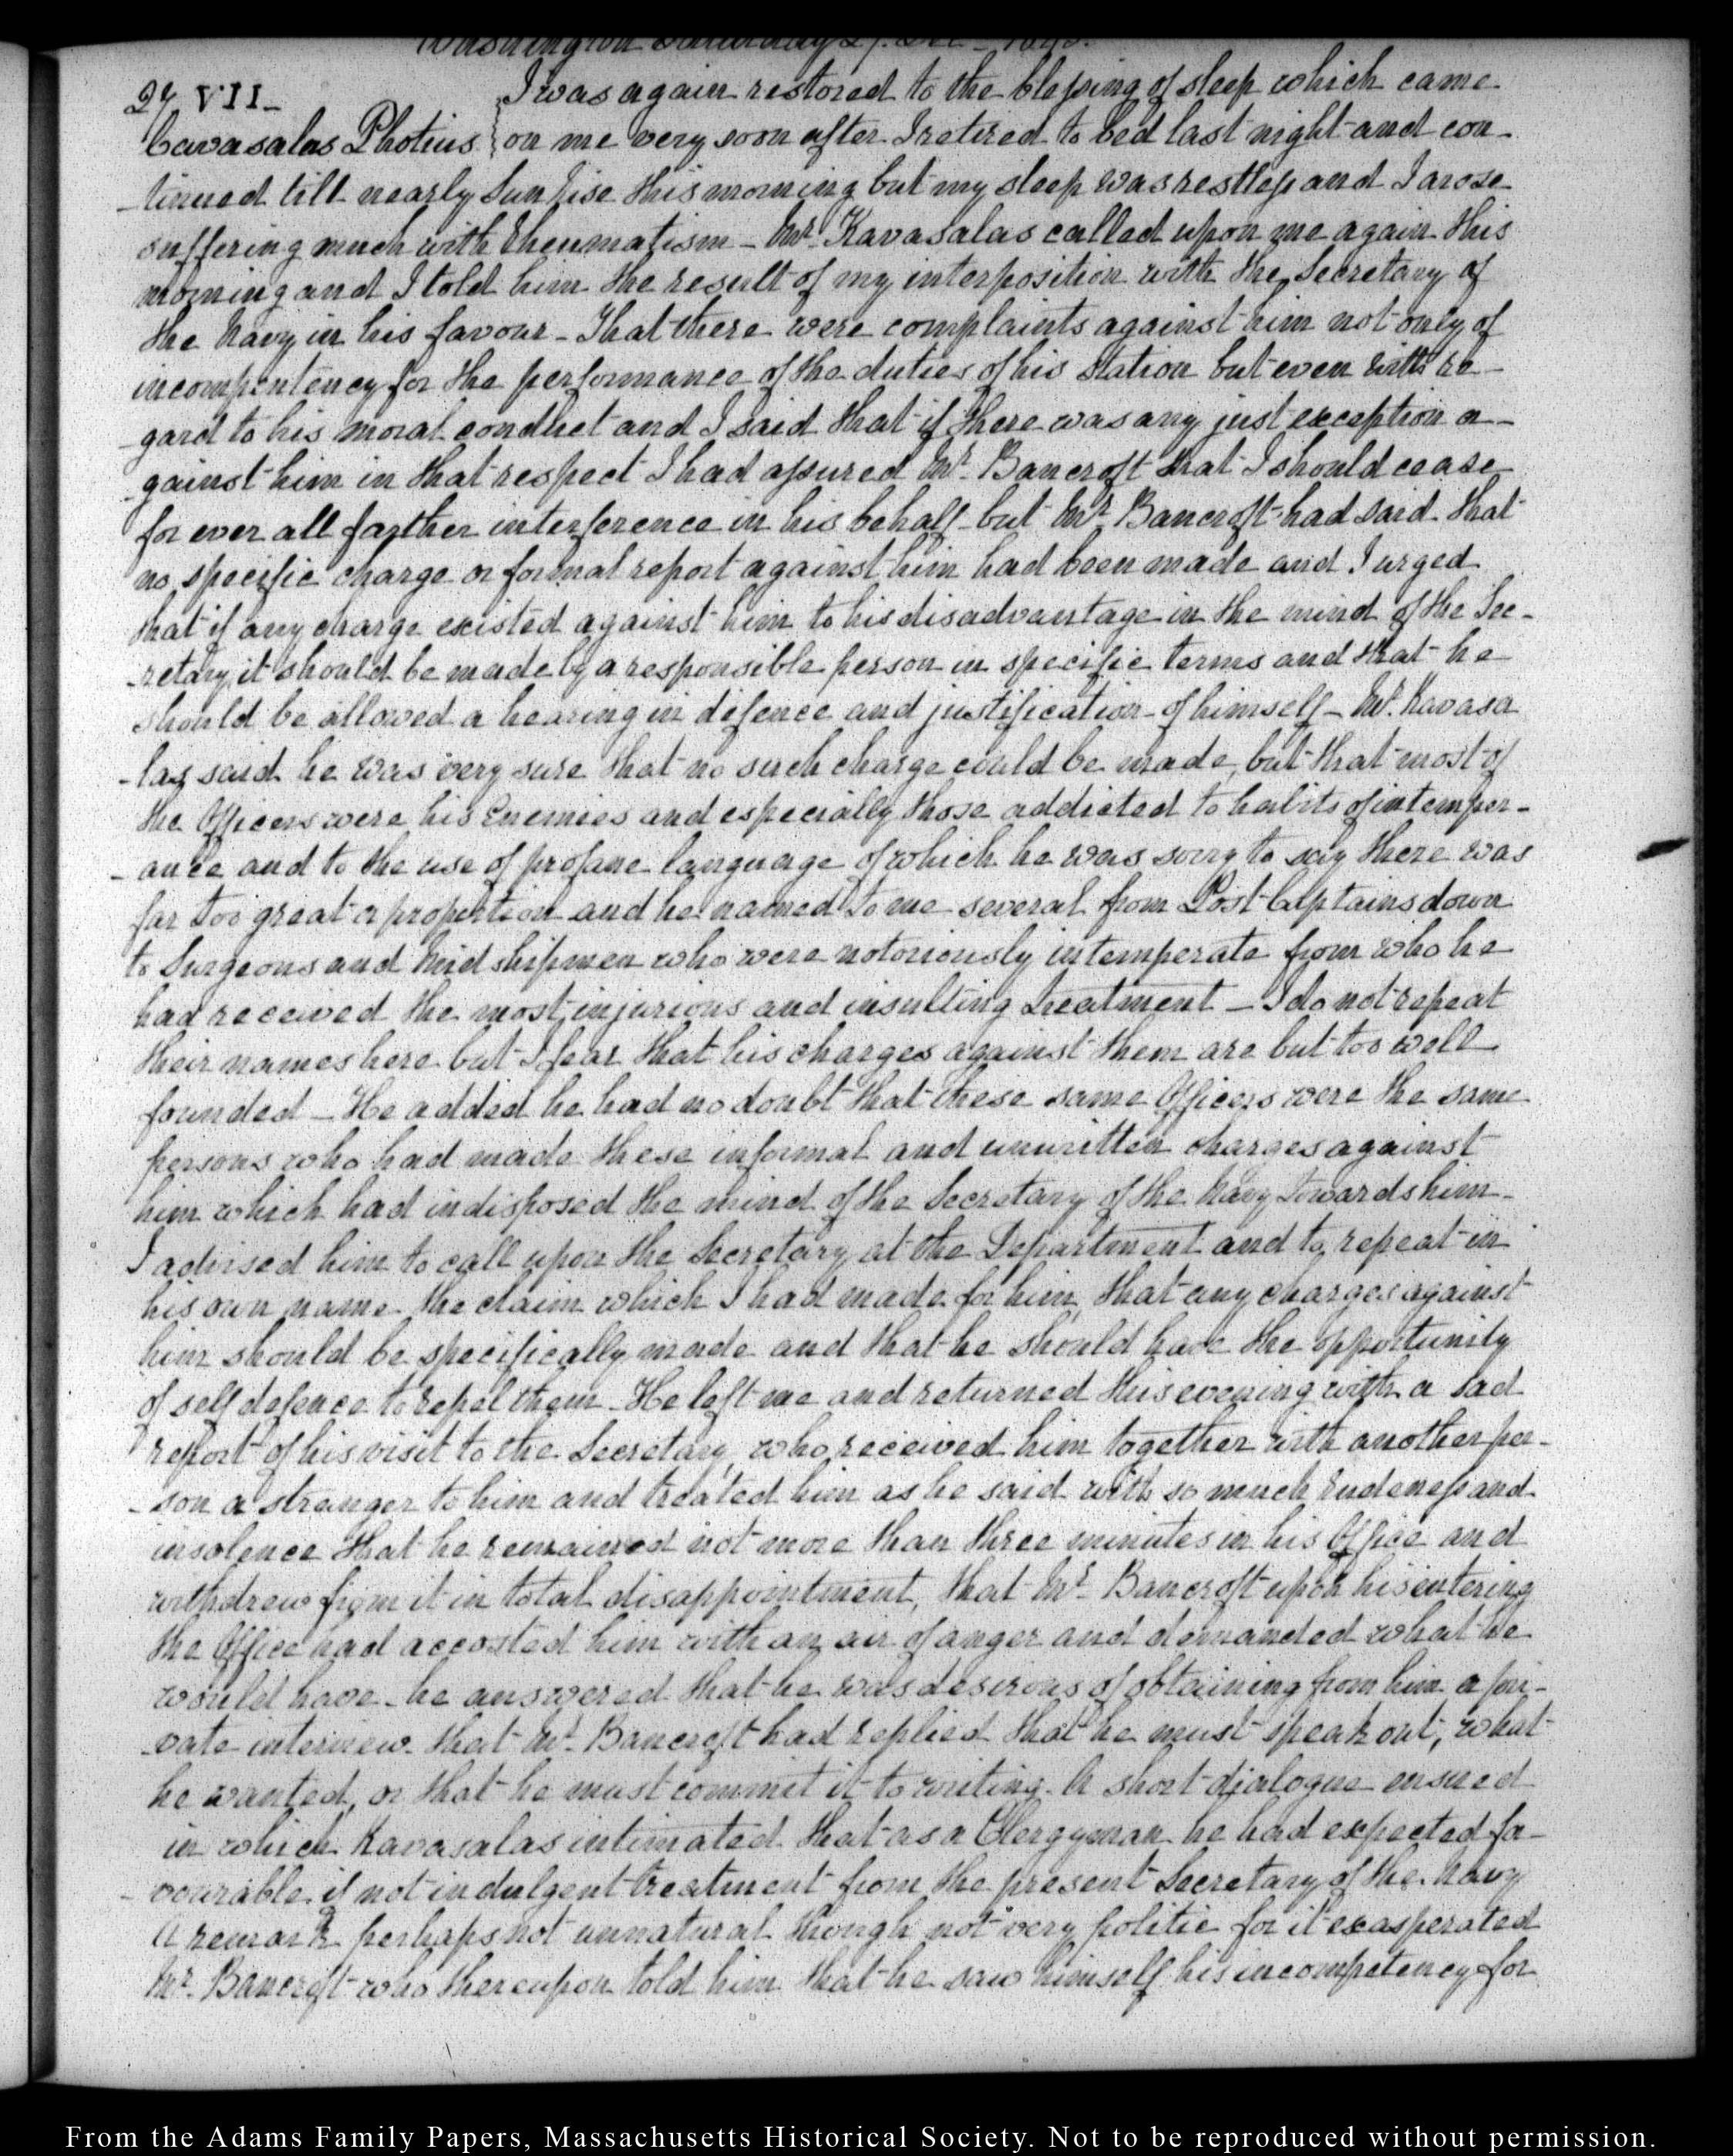 Washington Saturday 27. Dec - 1845.
27 VII- I was again restored to the blessing of sleep which came
Cavasalas Photius on me very soon after I retired to bed last night and con-
-tinued till nearly Sun rise this morning but my sleep was restless and I arose
suffering much with Rheumatism - Mr. Kavasalas called upon me again this
morning and I told him the result of my interposition with the Secretary of
the Navy in his favour - That there were complaints against him not only of
incompentency for the performance of the duties of his station but even with re-
-gard to his moral conduct and I said that if there was any just exception a-
-gainst him in that respect I had assured Mr. Bancroft that I should cease
for ever all farther interference in his behalf - but Mr. Bancroft had said that
no specific charge or formal report against him had been made and I urged
that if any charge existed against him to his disadvantage in the mind of the Sec-
-retary, it should be made by a responsible person in specific terms and that he
should be allowed a hearing in defence and justification of himself - Mr. Kavasa
-las said he was very sure that no such charge could be made, but that most of
the Officers were his Enemies and especially those addicted to habits of intemper-
-ance and to the use of profane language of which he was sorry to say there was
far too great a proportion and he named to me several from Post Captains down
to Surgeons and Midshipmen who were notoriously intemperate from who he
had received the most injurious and insulting treatment - I do not repeat
their names here but I fear that his charges against them are but too well
founded - He added he had no doubt that these same Officers were the same
persons who had made these informal and unwritten charges against
him which had indisposed the mind of the Secretary of the Navy towards him -
I advised him to call upon the Secretary at the Department and to repeat in
his own name the claim which I had made for him, that any charges against
him should be specifically made and that he should have the opportunity
of self defence to repel them - He left me and returned this evening with a sad
report of his visit to the Secretary, who received him together with another per-
-son a stranger to him and treated him as he said with so much rudeness and
insolence that he remained not more than three minutes in his Office and
withdrew from it in total disappointment, that Mr. Bancroft upon his entering
the Office had accosted him with an air of anger and demanded what he
would have - he answered that he was desirous of obtaining from him a pri-
-vate interview. that Mr. Bancroft had replied that he must speak out, what
he wanted, or that he must commit it to writing. A short dialogue ensued
in which Kavasalas intimated that as a Clergyman he had expected fa-
-vourable if not indulgent treatment from the present Secretary of the Navy
A remark perhaps not unnatural though not very politic for it exasperated
Mr. Bancroft who thereupon told him that he saw himself his incompetency for
From the Adams Family Papers, Massachusetts Historical Society. Not to be reproduced without permission.